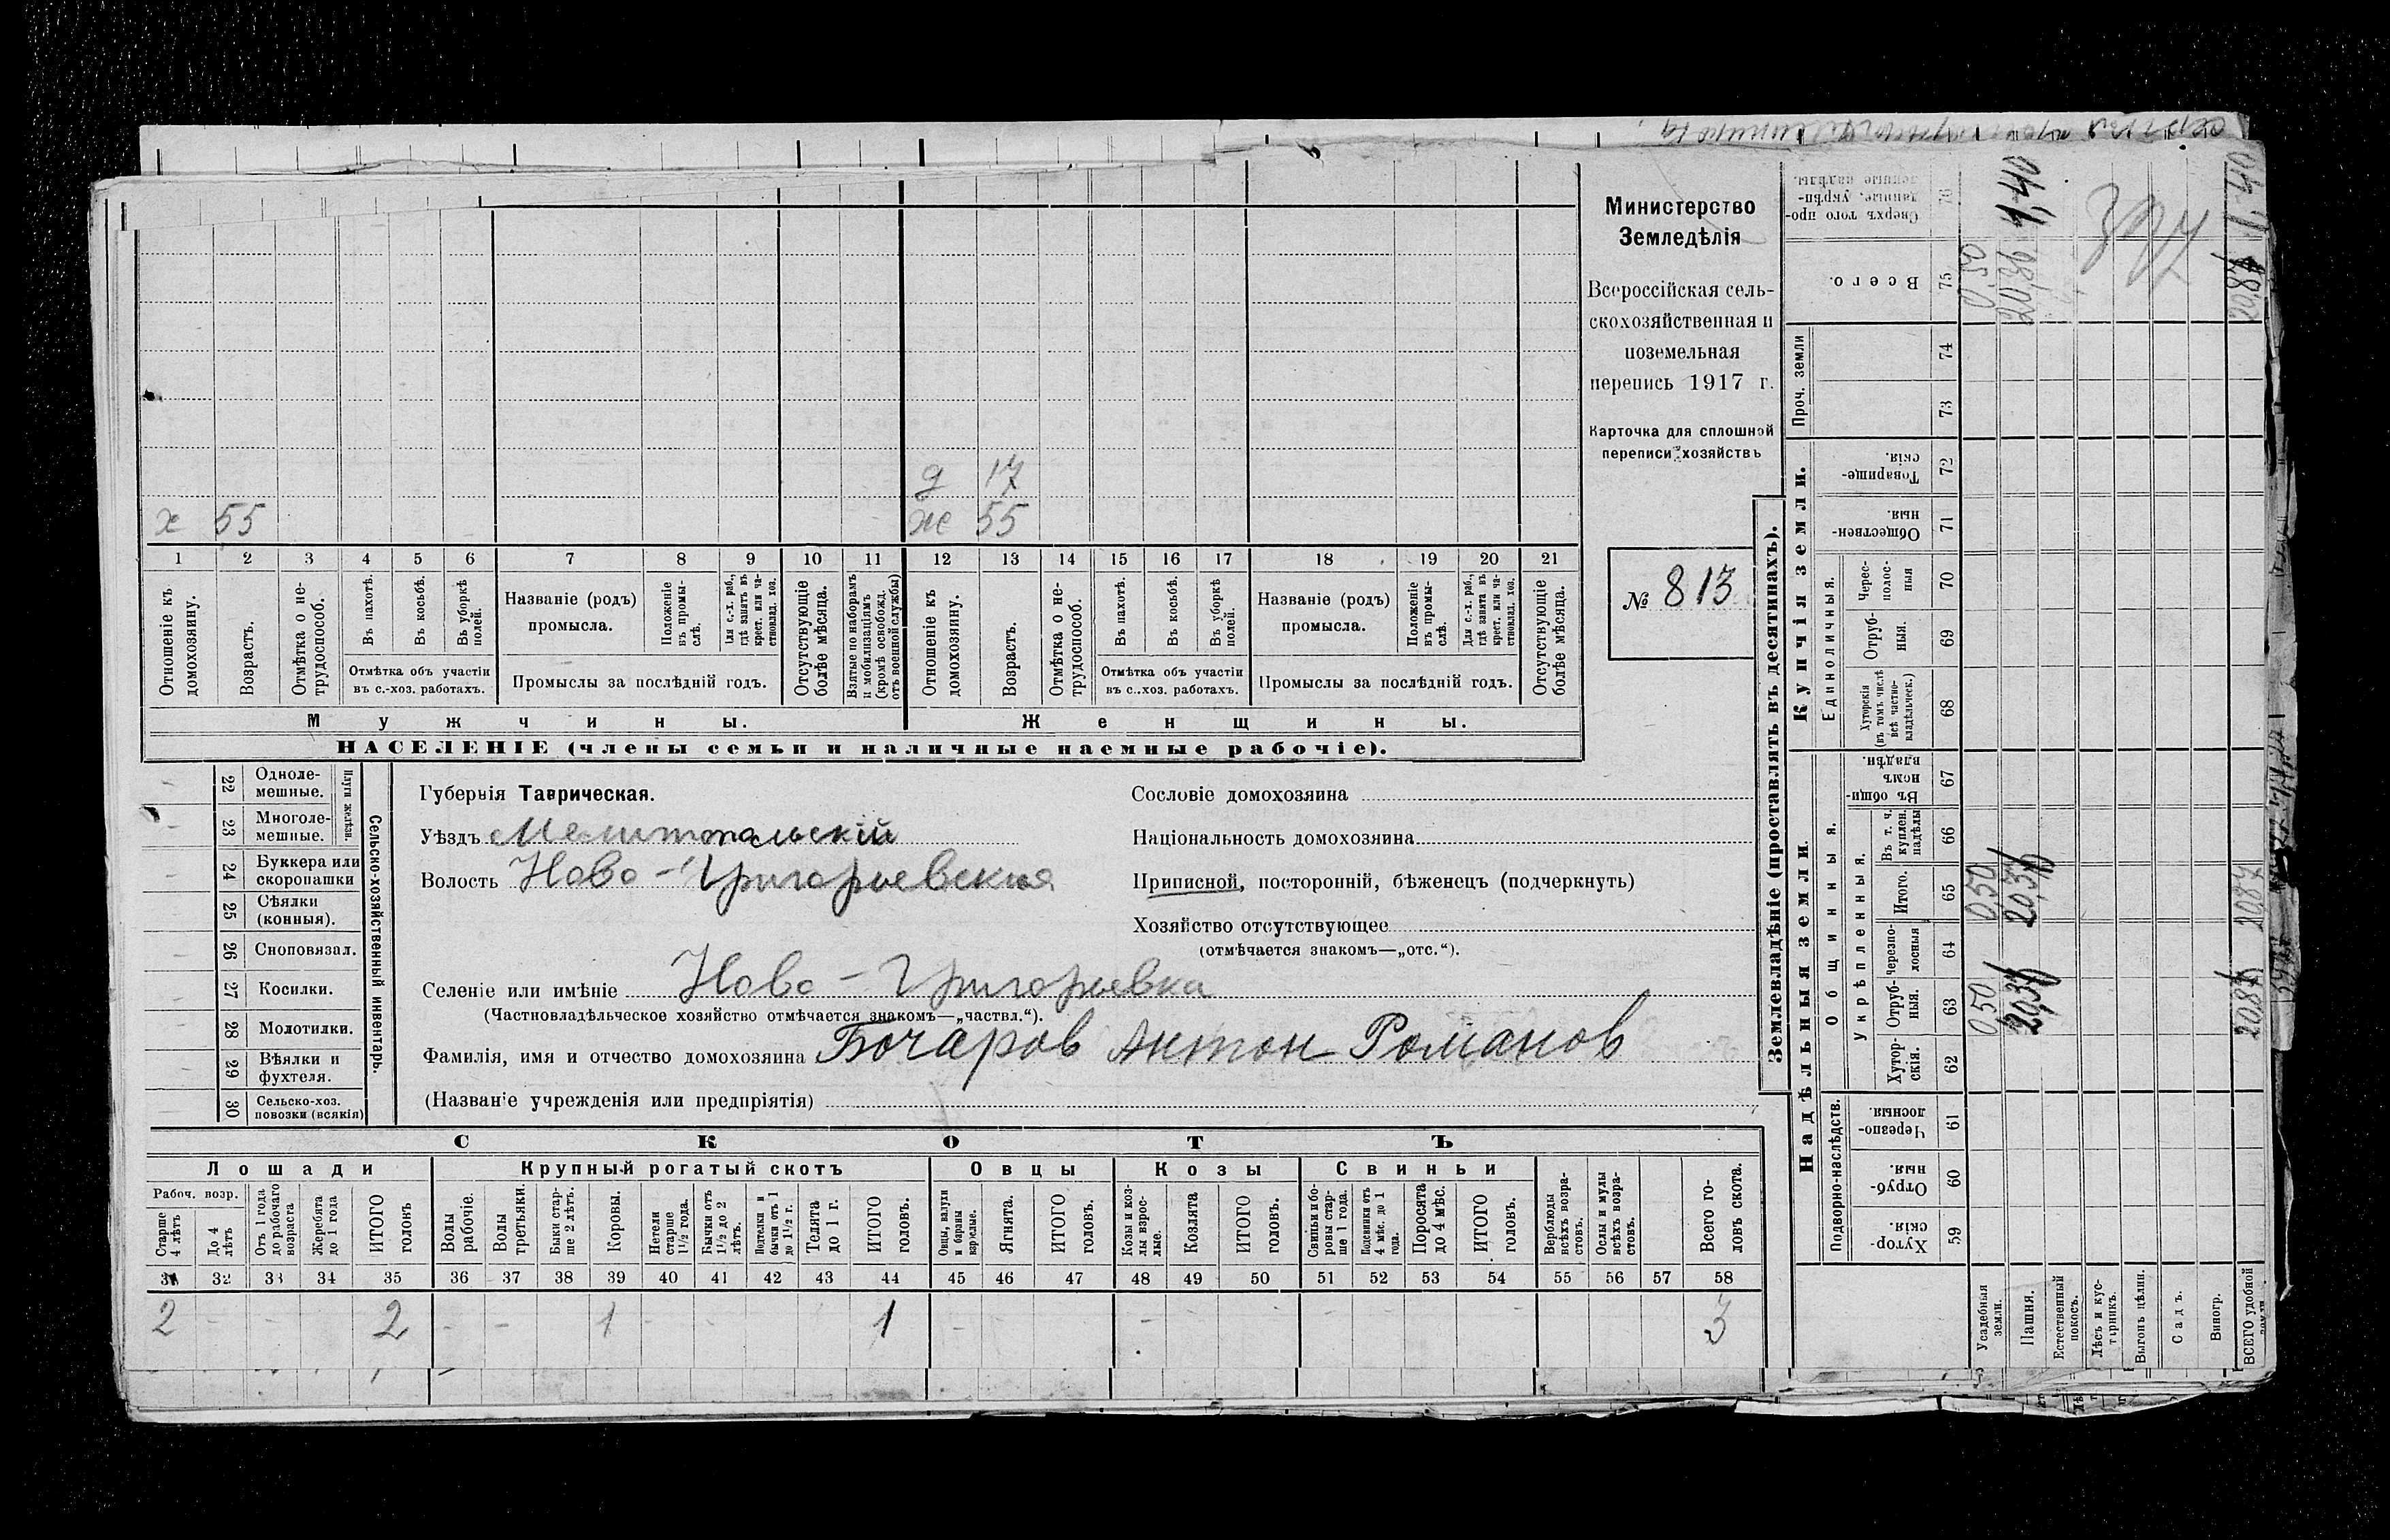 Министерство
Земледѣлія
Всероссійская сель-
скохозяйственная и
поземельная
перепись 1917 г.
Карточка для сплошной
переписи хозяйствъ
№ 813
д 17
х 55 ж 55
1 2 3 4 5 6 7 8 9 10 11 12 13 14 15 16 17 18 19 20 21
Отношеніе къ домохозяину.
Возрастъ.
Отмѣтка о не-трудоспособ.
Въ пахотѣ.
Въ косьбѣ.
Въ уборкѣ полей.
Отмѣтка объ участіи
въ с.-хоз. работахъ.
Названіе (родъ)
промысла.
Положеніе въ промы-слѣ.
Для с.-х. раб., гдѣ занятъ въ крест. или ча-стновлад. хоз.
Промыслы за послѣдній годъ.
Отсутствующіе болѣе мѣсяца.
Взятые по наборамъ и мобилизаціямъ (кромѣ освобожд. отъ военной службы)
Отношеніе къ домохозяину.
Возрастъ.
Отмѣтка о не-трудоспособ.
Въ пахотѣ.
Въ косьбѣ.
Въ уборкѣ полей.
Отмѣтка объ участіи
въ с.-хоз. работахъ.
Названіе (родъ)
промысла.
Положеніе въ промы-слѣ.
Для с.-х. раб., гдѣ занята въ крест. или ча-стновлад. хоз.
Промыслы за послѣдній годъ.
Отсутствующіе болѣе мѣсяца.
Мужчины. Женщины.
НАСЕЛЕНІЕ (члены семьи и наличные наемные рабочіе).
22 Одноле-мешные.
23 Многоле-мешные.
Плуги желѣзн.
24 Буккера или скоропашки
25 Сѣялки (конныя).
26 Сноповязал.
27 Косилки.
28 Молотилки.
29 Вѣялки и фухтеля.
30 Сельско-хоз. повозки (всякія)
Сельско-хозяйственный инвентарь.
Губернія Таврическая.
Уѣздъ Мелитопальскій
Волость Ново-Григорьевская
Селеніе или имѣніе Ново-Григорьевка
(Частновладѣльческое хозяйство отмѣчается знакомъ—„частвл.“).
Фамилія, имя и отчество домохозяина Бочаров Антон Романов
(Названіе учрежденія или предпріятія)
Сословіе домохозяина
Національность домохозяина
Приписной, посторонній, бѣженецъ (подчеркнуть)
Хозяйство отсутствующее
(отмѣчается знакомъ—„отс.“).
СКОТЪ
Лошади Крупный рогатый скотъ Овцы Козы Свиньи
Рабоч. возр.
Старше 4 лѣтъ
До 4 лѣтъ
Отъ 1 года до рабочаго возраста
Жеребята до 1 года
ИТОГО головъ
Волы рабочіе.
Волы третьяки.
Быки стар-ше 2 лѣтъ.
Коровы.
Нетели старше 1½ года.
Бычки отъ 1½ до 2 лѣтъ.
Подтелки и бычки отъ 1 до 1½ г.
Телята до 1 г.
ИТОГО головъ.
Овцы, валухи и бараны взрослые.
Ягнята.
ИТОГО головъ.
Козы и коз-лы взрос-лые.
Козлята
ИТОГО головъ.
Свиньи и бо-ровы стар-ше 1 года.
Подсвинки отъ 4 мѣс. до 1 года.
Поросята до 4 мѣс.
ИТОГО головъ.
Верблюды всѣхъ возра-стовъ.
Ослы и мулы всѣхъ возра-стовъ.
Всего го-ловъ скота.
31 32 33 34 35 36 37 38 39 40 41 42 43 44 45 46 47 48 49 50 51 52 53 54 55 56 57 58
2 - - 2 - - 1 - 1 - - - - - - - 3
Землевладѣніе (проставлять въ десятинахъ).
Надѣльныя земли.
Купчія земли.
Проч. земли
Подворно-наслѣдств.
Общинныя.
Укрѣпленныя.
Единоличныя.
Хутор-скія. 59
Отруб-ныя. 60
Черезпо-лосныя. 61
Хутор-скія. 62
Отруб-ныя. 63
Черезпо-лосныя 64
Итого. 65
Въ т. ч. куплен. надѣлы 66
Въ общи-номъ владѣн. 67
Хуторскія (въ томъ числѣ всѣ частно-владѣльческ.) 68
Отруб-ныя. 69
Черес-полос-ныя 70
Обществен-ныя. 71
Товарище-скія. 72
73
74
Всего. 75
Сверхъ того про-данные, укрѣп-ленные надѣлы. 76
Усадебныя земли.
0,50 0,50 0,50
Пашня.
20,37 20,37 20,36 1,40
Естественный покосъ.
Лѣсъ и кус-тарникъ.
Выгонъ цѣлин.
Садъ.
Виногр.
ВСЕГО удобной
20,87 20,87 20,87 1,40